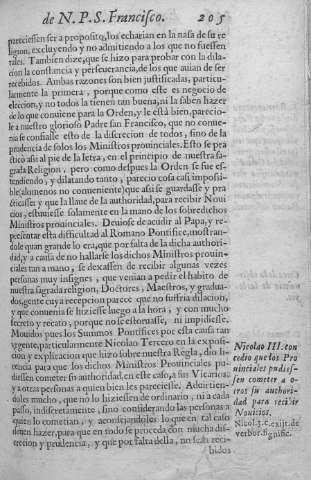 de N. P. S. Francisco. 205
pareciessen ser a proposito, los echarian en la nasa de su re
ligion, excluyendo y no admitiendo a los que no fuessen
tales. Tambien dize, que se hizo para probar con la dila-
cion la constancia y perseuerancia, de los que auian de ser
recebidos. Ambas razones son bien justificadas, particu-
larmente la primera, porque como este es negocio de
eleccion, y no todos la tienen tan buena, ni la saben hazer
de lo que conuiene para la Orden, y le està bien, parecio-
le a nuestro glorioso Padre san Francisco, que no conue-
nia se confiasse esto de la discrecion de todos, sino de la
prudencia de solos los Ministros prouinciales. Esto se pra
cticò assi al pie de la letra, en el principio de nuestra sa-
grada Religion, pero como despues la Orden se fue es-
tendiendo, y dilatando tanto, parecio cosa casi impossi-
ble (alomenos no conueniente) que assi se guardasse y pra
cticasse y que la llaue de la authoridad, para recibir Noui
cios, estuuiesse solamente en la mano de los sobredichos
Ministros prouinciales. Deuiose de acudir al Papa, y re-
presentar esta difficultad al Romano Pontifice, mostran-
dole quan grande lo era, que por falta de la dicha authori-
dad, y a causa de no hallarse los dichos Ministros prouin-
ciales tan a mano, se dexassen de recibir algunas vezes
personas muy insignes, que venian a pedir el habito de
nuestra sagrada religion, Doctores, Maestros, y gradua-
dos, gente cuya recepcion parece que no suffria dilacion,
y que conuenia se hiziesse luego a la hora, y con mucho
secreto y recato, porque no se estoruasse, ni impidiesse.
Mouidos pues los Summos Pontifices por esta causa tan
vrgente, particularmente Nicolao Tercero en la exposi-
cion y explicacion que hizo sobre nuestra Regla, dio li-
cencia para que los dichos Ministros Prouinciales pu-
diessen cometer su authoridad, en este caso, a sus Vicarios,
y a otras personas a quien bien les pareciesse. Aduirtien-
doles mucho, que no lo hiziessen de ordinario, ni a cada
passo, indiscretamente, sino considerando las personas a
quien lo cometian, y aconsejandoles lo que en tal caso
deuen hazer, para que en todo se proceda con mucha dis-
crecion y prudencia, y que por falta della, no sean reci-
bidos
Nicolao III. con
cedio que los Pro
uinciales pudies-
sen cometer a o-
tros su authori-
dad para recibir
Nouicios.
Nicol. 3. c. exijt. de
verbor. signific.